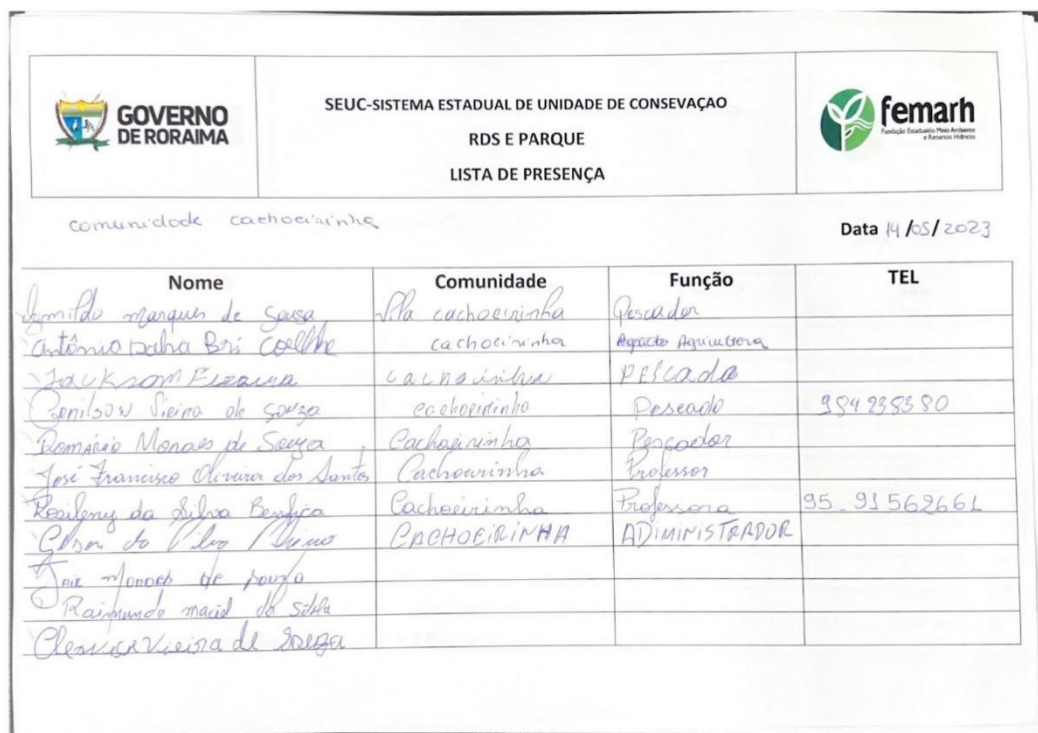 GOVERNO
DE RORAIMA
SEUC-SISTEMA ESTADUAL DE UNIDADE DE CONSEVAÇAO
RDS E PARQUE
LISTA DE PRESENÇA
femarh
Fundação Estadual do Meio Ambiente
e Recursos Hídricos
comunidade cachoeirinha
Data 14/05/2023
Nome Comunidade Função TEL
marques de Sousa Vila cachoeirinha Pescador
antônio cachoeirinha
Jackson cachoeirinha Pescado
Genilson Vieira de Souza cachoeirinha Pescado 984238380
Romário Moraes de Souza Cachoeirinha Pescador
José Francisco Oliveira dos Santos Cachoeirinha Professor
Rosileny da Silva Benfica Cachoeirinha Professora 95_91562661
da CACHOEIRINHA ADIMINISTRADOR
Jair Moraes de Souza
Raimundo maciel da Silva
Vieira de Souza